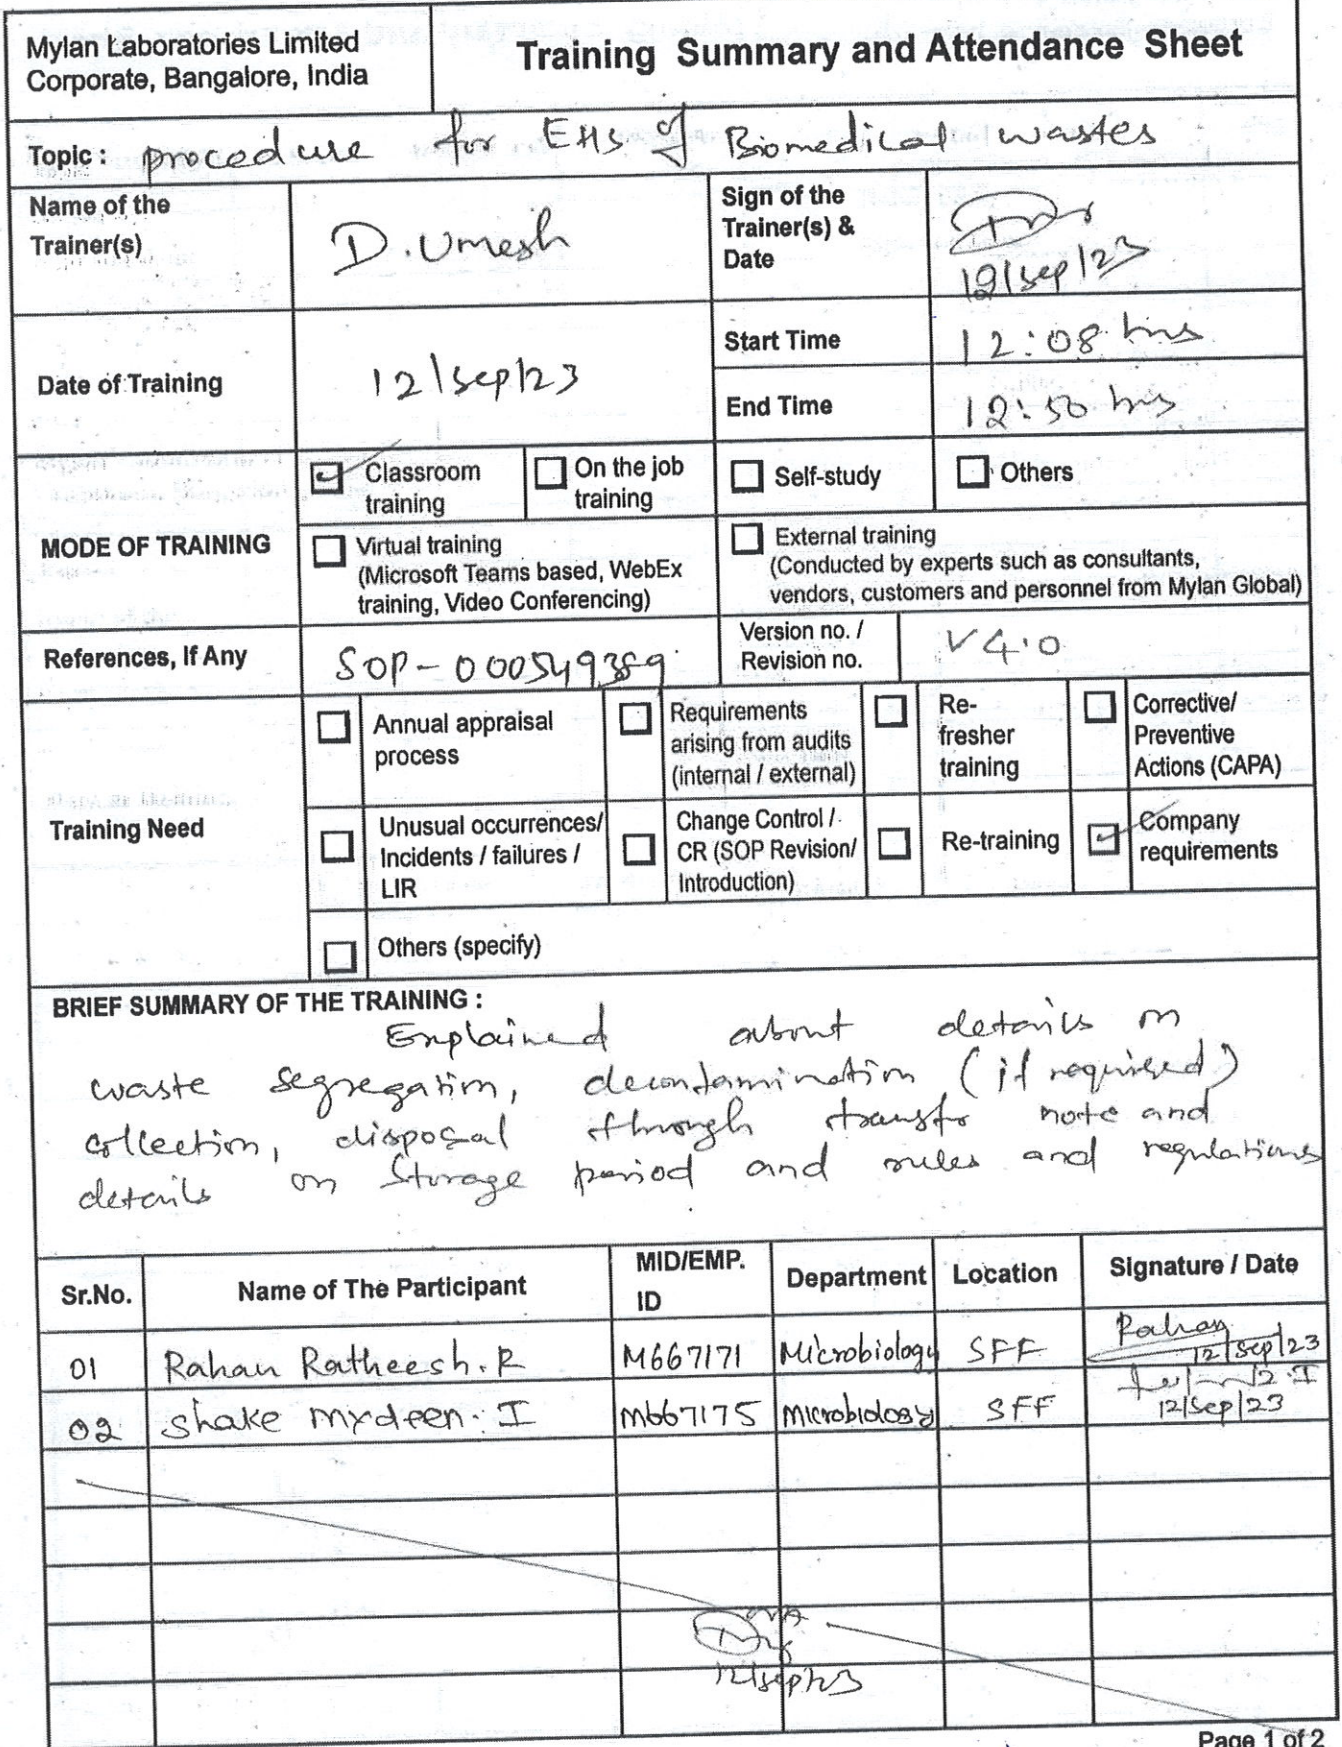 Mylan Laboratories Limited
Corporate, Bangalore, India
Training Summary and Attendance Sheet
Topic : procedure for EHS of Biomedical wastes
Name of the
Trainer(s)
D. Umesh
Sign of the
Trainer(s) &
Date
12/sep/23
Date of Training
12/sep/23
Start Time
12:08 hrs
End Time
12:50 hrs
MODE OF TRAINING
Classroom
training
On the job
training
Self-study
Others
Virtual training
(Microsoft Teams based, WebEx
training, Video Conferencing)
External training
(Conducted by experts such as consultants,
vendors, customers and personnel from Mylan Global)
References, If Any
SOP-000549389
Version no. /
Revision no.
V4.0
Training Need
Annual appraisal
process
Requirements
arising from audits
(internal / external)
Re-
fresher
training
Corrective/
Preventive
Actions (CAPA)
Unusual occurrences/
Incidents / failures /
LIR
Change Control /
CR (SOP Revision/
Introduction)
Re-training
Company
requirements
Others (specify)
BRIEF SUMMARY OF THE TRAINING :
Explained about details on
waste segregation, decontamination (if required)
collection, disposal through transfer note and
details on storage period and rules and regulations
Sr.No. Name of The Participant MID/EMP. ID Department Location Signature / Date
01 Rahan Ratheesh. R M667171 Microbiology SFF Rahan 12/sep/23
02 Shake mydeen. I M667175 Microbiology SFF 12/sep/23
NA
12/sep/23
Page 1 of 2